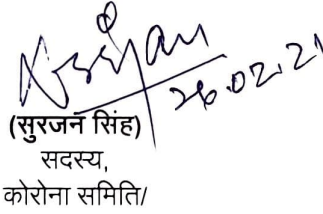 26.02.21
(सुरजन सिंह)
सदस्य,
कोरोना समिति/